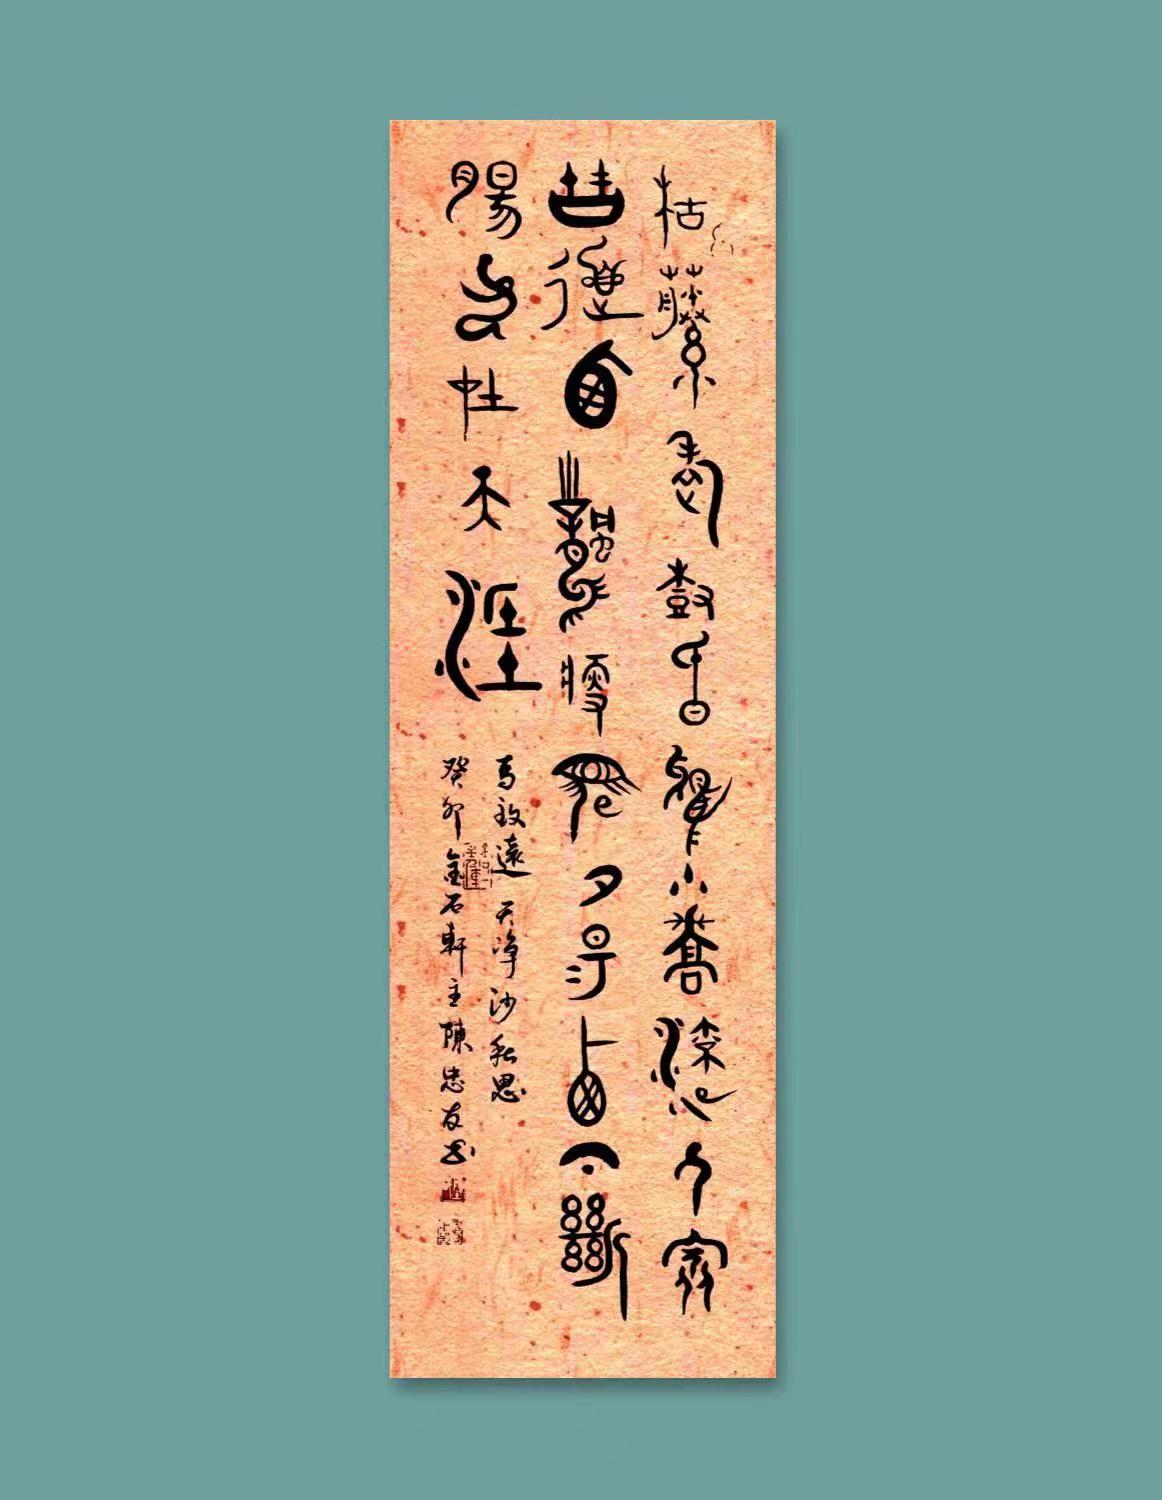 枯藤老樹昏鴉小橋流水人家
古道西風瘦馬夕陽西下斷
腸人在天涯
馬致遠 天净沙 秋思
癸卯 金石軒主陳忠友書